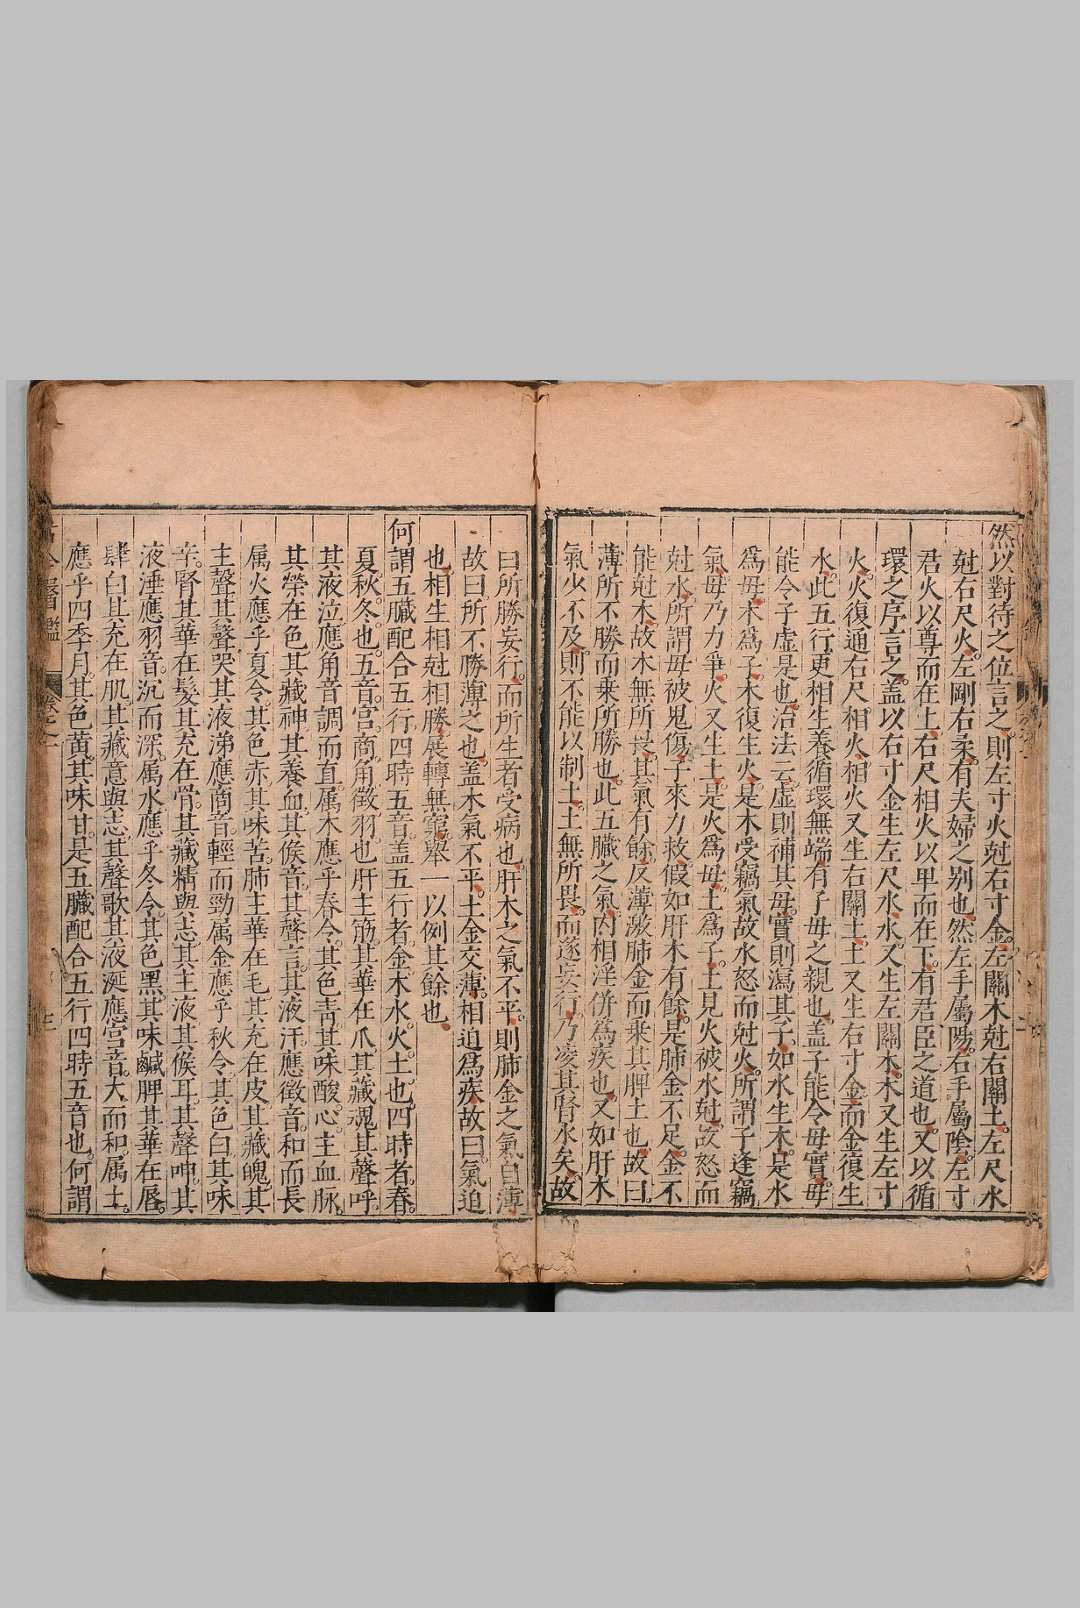 然以對待之位言之則左寸火尅右寸金左關木尅右關土左尺水
尅右尺火左剛右柔有夫婦之别也然左手屬陽右手屬陰左寸
君火以尊而在上右尺相火以卑而在下有君臣之道也又以循
環之序言之盖以右寸金生左尺水水又生左關木木又生左寸
火火復通右尺相火相火又生右關土土又生右寸金而金復生
水此五行更相生養循環無端有子母之親也盖子能令母實母
能令子虚是也治法云虚則補其母實則瀉其子如水生木是水
爲母木爲子木復生火是木受竊氣故水怒而尅火所謂子逢竊
氣母乃力爭火又生土是火爲母土爲子土見火被水尅故怒而
尅水所謂母被鬼傷子來力救假如肝木有餘是肺金不足金不
能尅木故木無所畏其氣有餘反薄激肺金而乗其脾土也故曰
薄所不勝而乗所勝也此五臓之氣内相淫併爲疾也又如肝木
氣少不及則不能以制土土無所畏而遂妄行乃凌其腎水矣故
曰所勝妄行而所生者受病也肝木之氣不平則肺金之氣自薄
故曰所不勝薄之也盖木氣不平土金交薄相迫爲疾故曰氣迫
也相生相尅相勝展轉無窮舉一以例其餘也
何謂五臓配合五行四時五音盖五行者金木水火土也四時者春
夏秋冬也五音宫商角徵羽也肝主筋其華在爪其藏魂其聲呼
其液泣應角音調而直属木應乎春令其色青其味酸心主血脉
其榮在色其藏神其養血其候音其聲言其液汗應徵音和而長
属火應乎夏令其色赤其味苦肺主華在毛其充在皮其藏魄其
主聲其聲哭其液涕應商音輕而勁属金應乎秋令其色白其味
辛腎其華在髮其充在骨其藏精與志其主液其候耳其聲呻其
液唾應羽音沉而深属水應乎冬令其色黑其味鹹脾其華在唇
肆白其充在肌其藏意與志其聲歌其液涎應宫音大而和属土
應乎四季月其色黄其味甘是五臓配合五行四時五音也何謂
醫鑑 卷之一